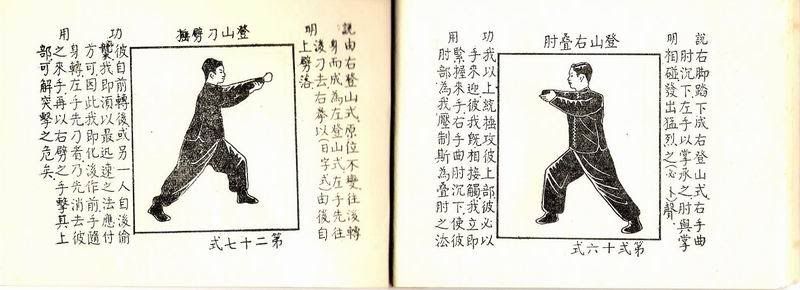 登山右叠肘
說右脚踏下成右登山式右手曲
肘沉下左手以掌承之肘與掌
明相碰發出猛烈之(必卜聲)
功我以上統搥攻彼上部彼必以
手來迎彼我既相接觸我立即
用緊握來手右手曲肘沉下使彼
肘部為我壓制斯為叠肘之法
第弍十六式
登山刁劈搥
說由右登山式原位不變往後轉
身而成為左登山式左手先往
明後刁去右拳以(日字式)由後自
上劈落
功彼自前轉後或另一人自後偷
襲我即須以最迅速之法應付
方可因此我即化後作前手隨
身轉左手先刁者乃先消去彼
用之來手再以右劈之手擊其上
部可解突擊之危矣
第二十七式